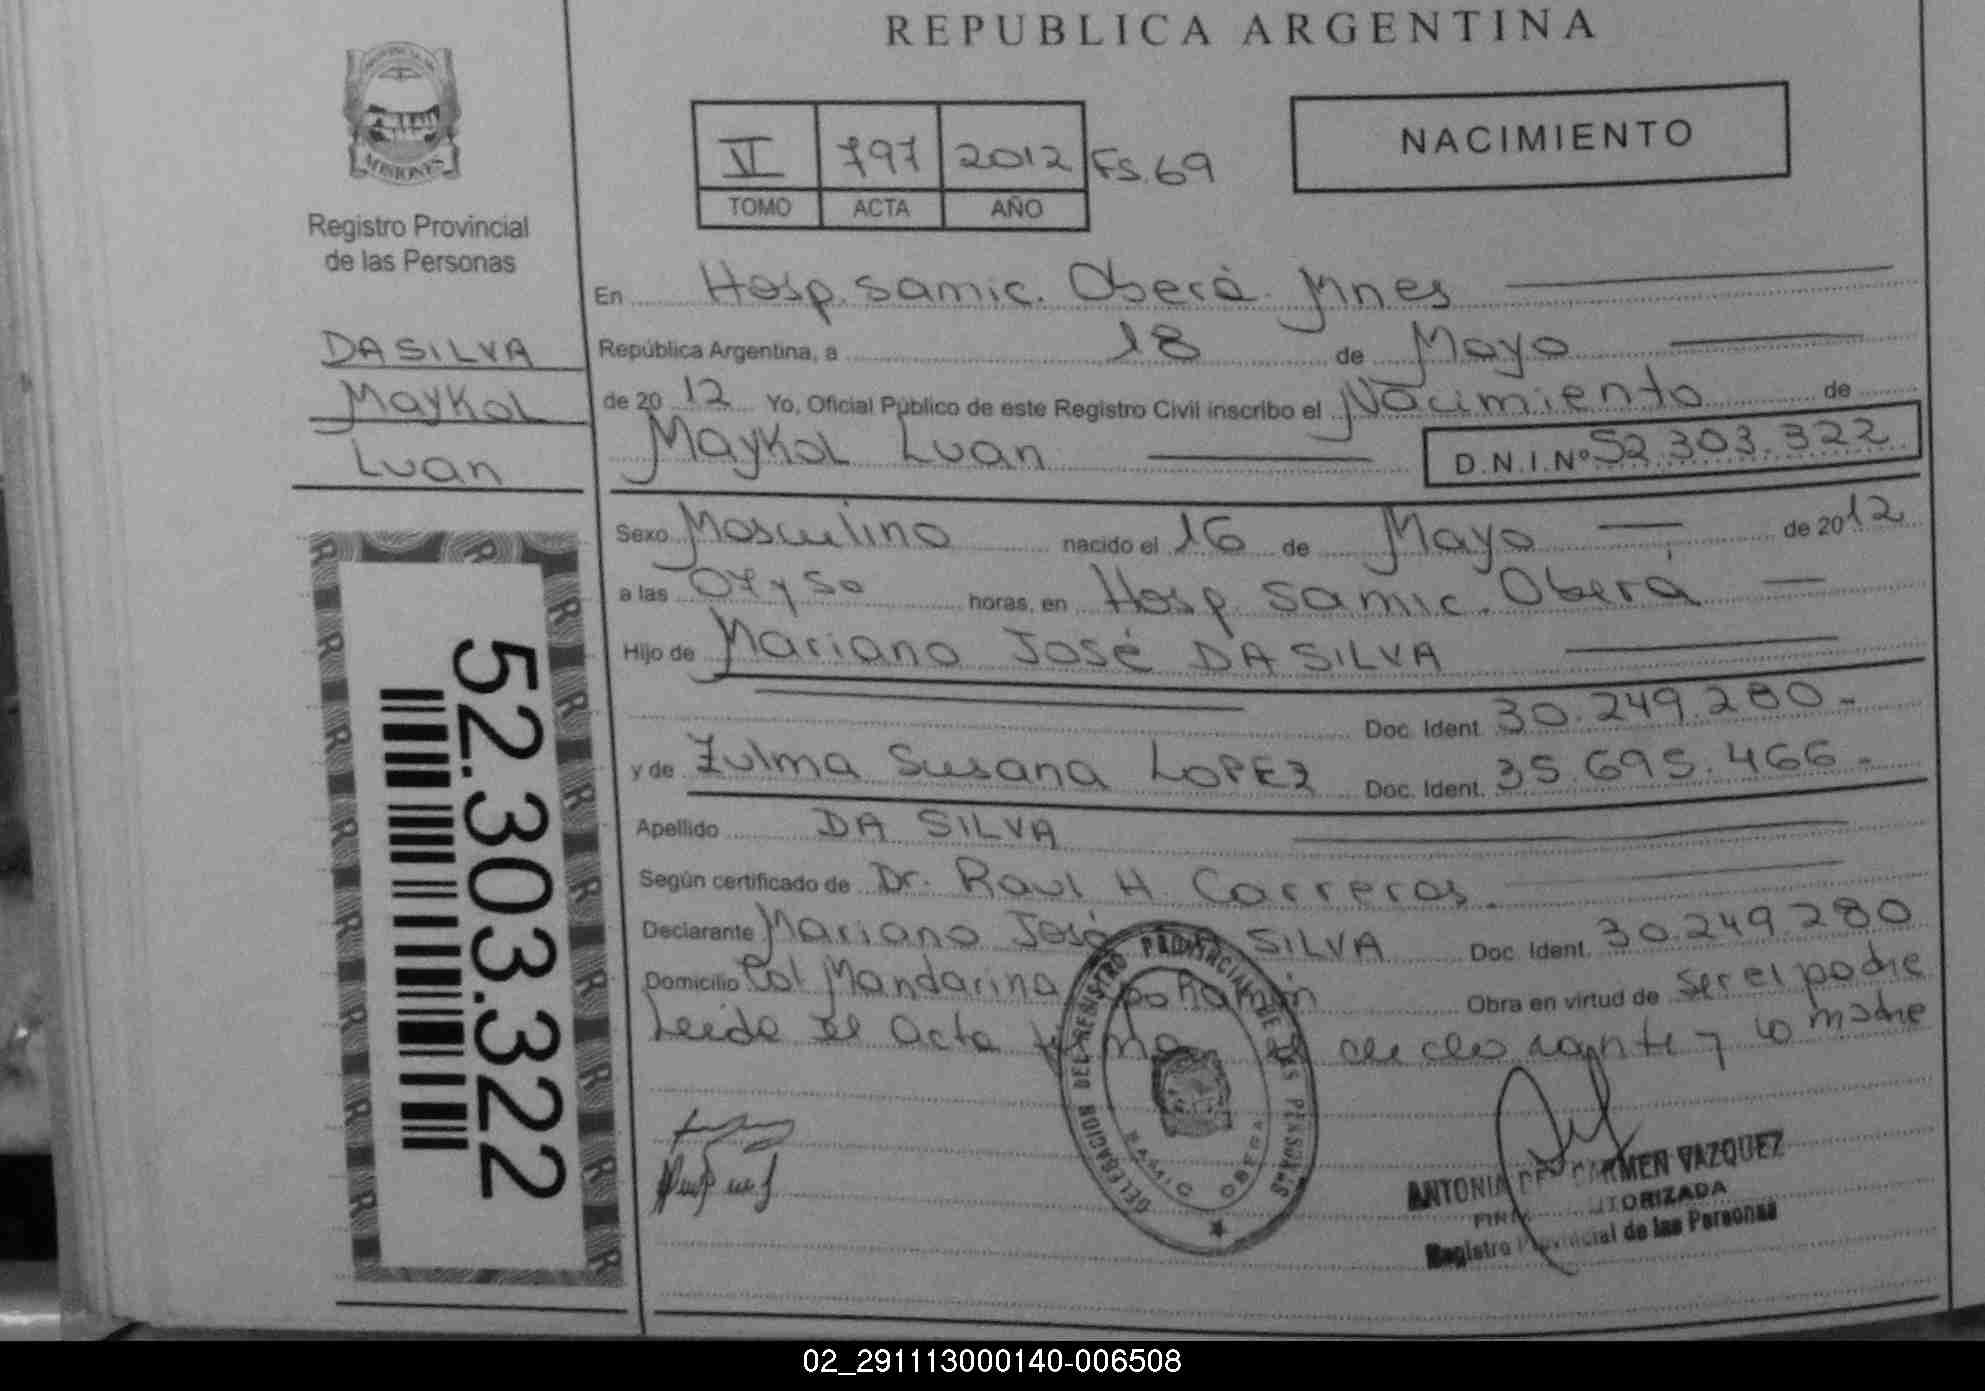 REPUBLICA ARGENTINA
MISIONES
Registro Provincial
de las Personas
VI 797 2012 Fs. 69
TOMO ACTA AÑO
NACIMIENTO
DA SILVA
Maykol
Luan
52.303.322
En Hosp. Samic. Oberá. Mnes
República Argentina, a 18 de Mayo
de 20 12 Yo, Oficial Público de este Registro Civil inscribo el Nacimiento de
Maykol Luan D.N.I.Nº 52.303.322
Sexo Masculino nacido el 16 de Mayo de 2012
a las 07 y 50 horas, en Hosp. Samic. Oberá
Hijo de Mariano José DA SILVA
Doc. Ident. 30.249.280-
y de Zulma Susana LOPEZ Doc. Ident. 35.695.466-
Apellido DA SILVA
Según certificado de Dr. Raul H. Carreras.
Declarante Mariano José SILVA Doc. Ident. 30.249.280
Domicilio Col Mandarina Ramón Obra en virtud de ser el padre
Leída el Acta firma el declarante y la madre
DELEGACION DEL REGISTRO PROVINCIAL DE LAS PERSONAS
SAMIC OBERA
ANTONIA DEL CARMEN VAZQUEZ
FIRMA AUTORIZADA
Registro Provincial de las Personas
02_291113000140-006508